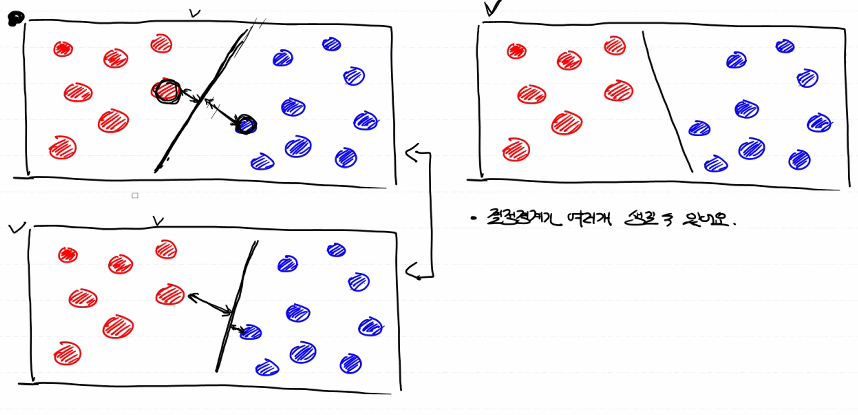 • 결정경계가 여러개 생길 수 있네요.